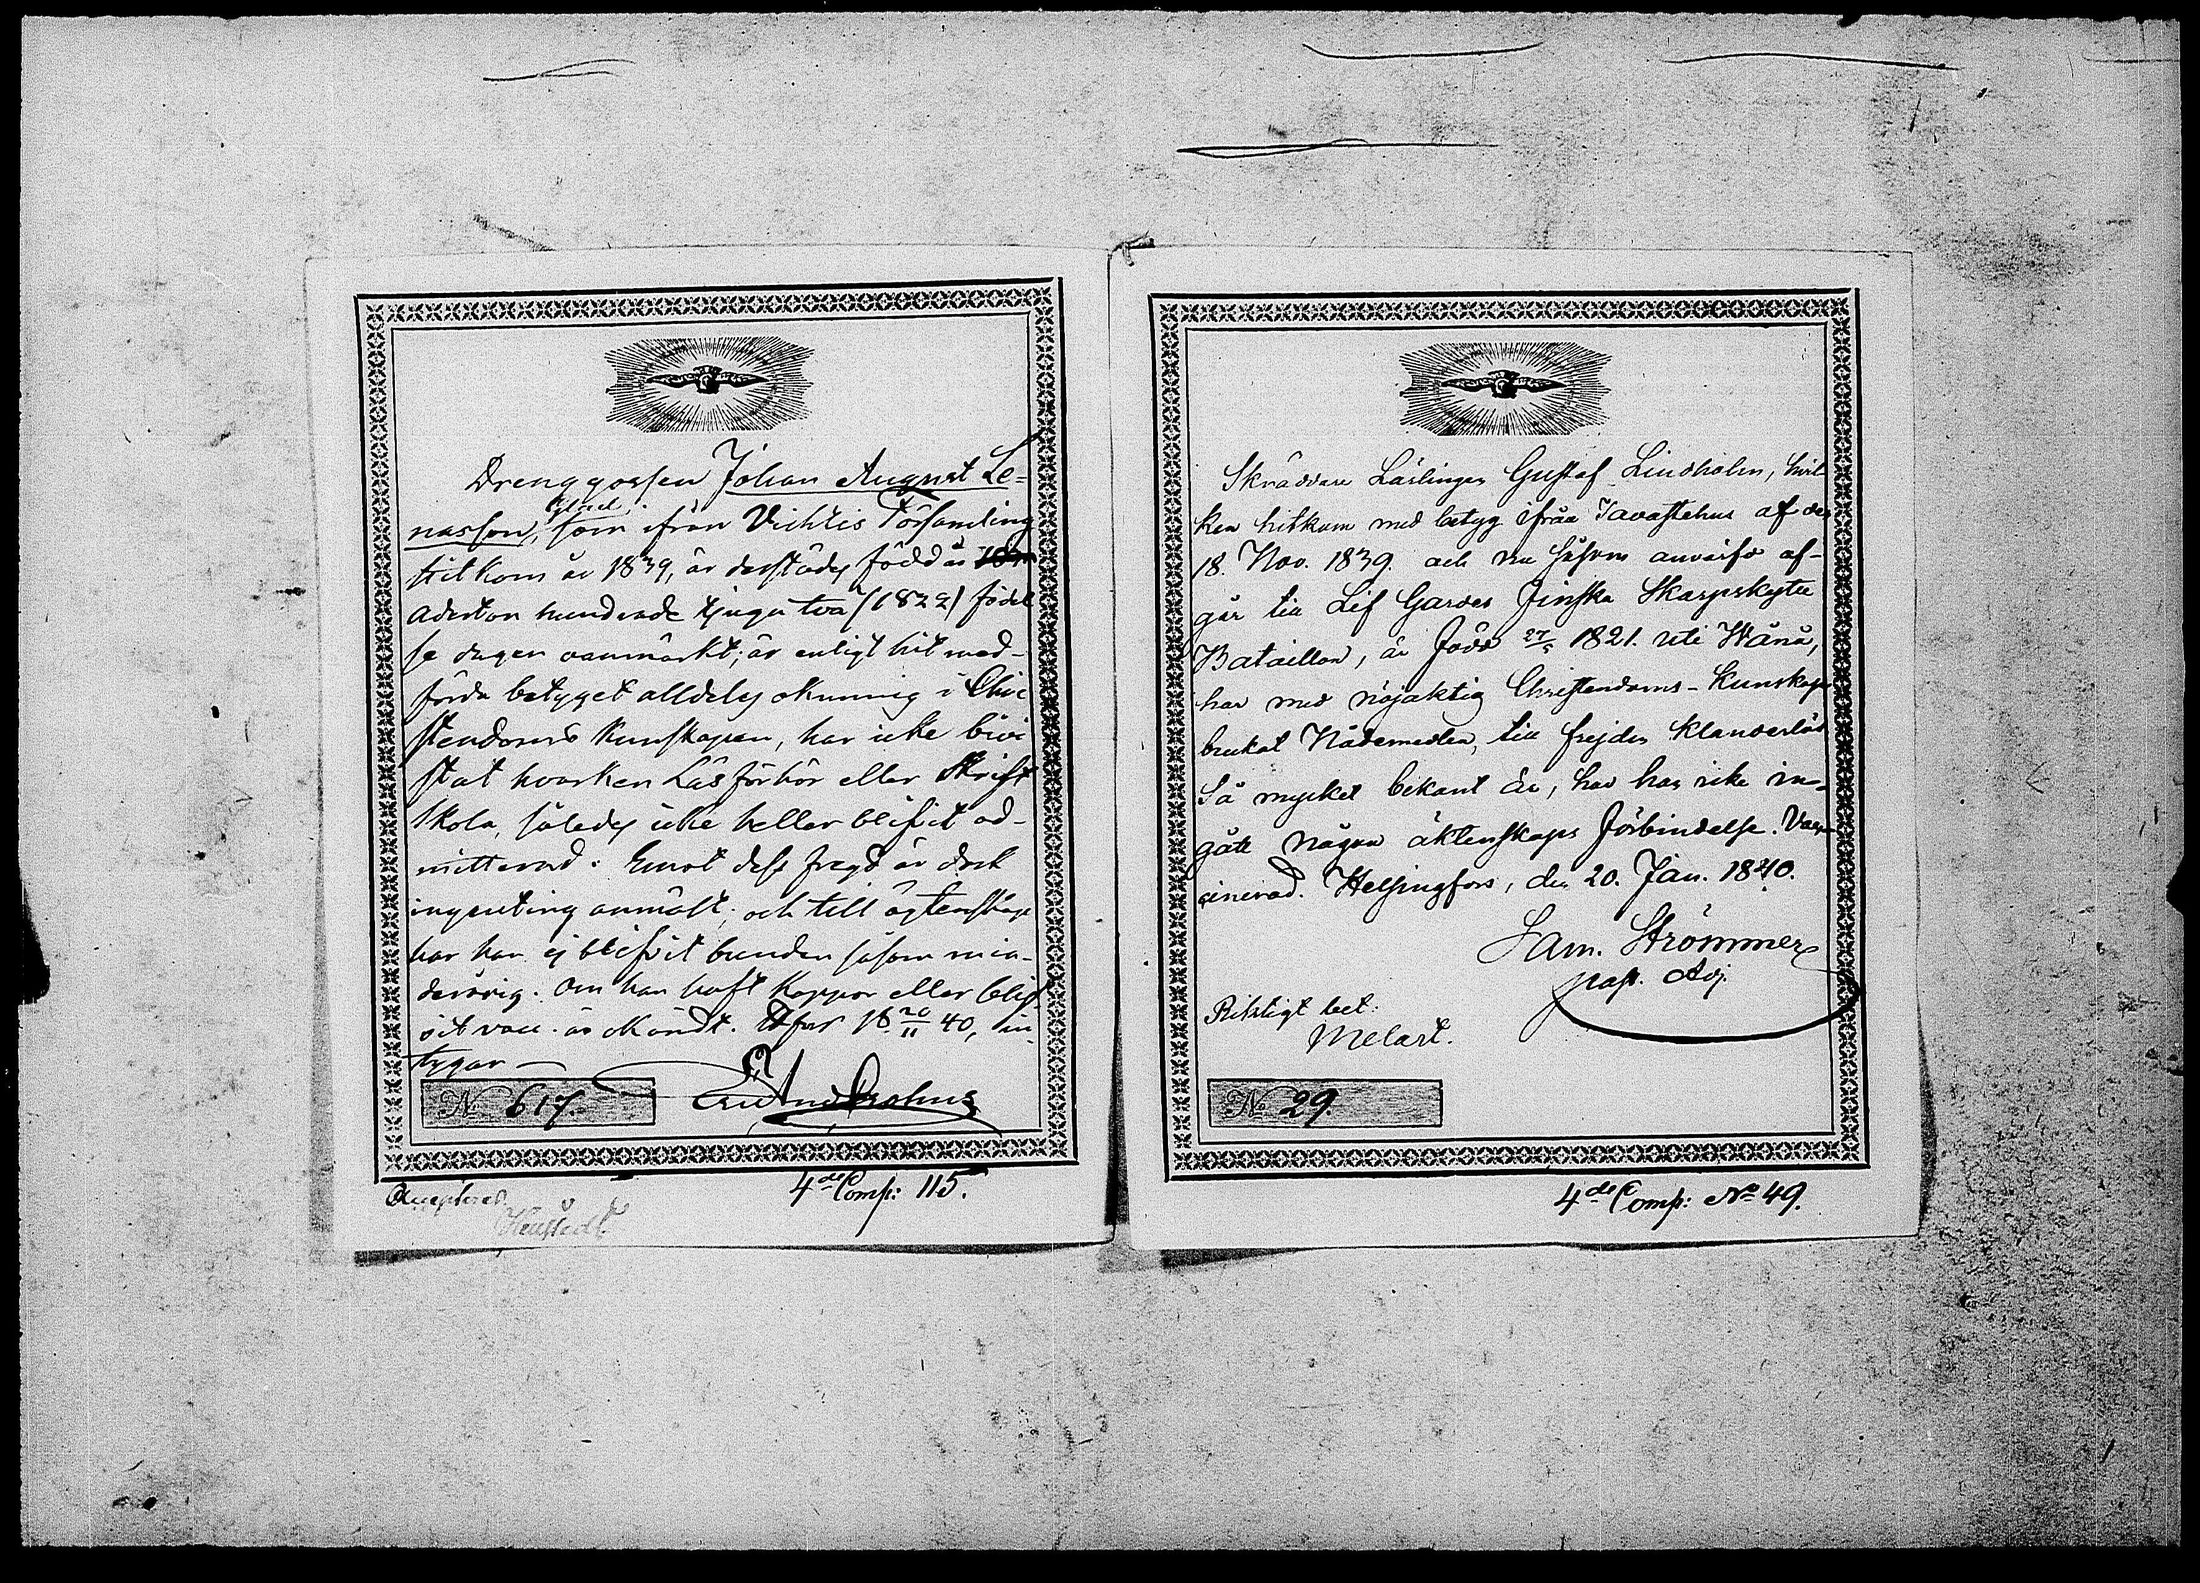 Drenggossen Johan August Le=
nasson, som ifrån Vichtis Församling
hitkom år 1839, är derstädes född år
aderton hundrade tjugu två (1822) födel
se dagen oanmärkt; är enligt hit med-
förda betyget alldeles okunnig i Chri
stendoms kunskapen, har icke bivi
stat hvarken Läsförhör eller Skrift
skola, således icke heller blifvit ad-
mitterad. Emot dess fregd är dock
ingenting anmält; och till ägtenskap
har han ej blifvit bunden såsom min-
derårig. Om han haft koppor eller blif
vit vacc. är okändt. H:fors 18 20/11 40, in-
tygar
No 617.
4de Comp: 115.
Skräddare Lärlingen Gustaf Lindholm, hvil-
ken hitkom med betyg ifrån Tavastehus af den
18. Nov. 1839. och nu såsom anvärfd af-
går till Lif Gardes Finska Skarpskytte
Bataillon, är född 27/5 1821. uti Wånå,
har med nöjaktig Christendoms-Kunskap
brukat Nådemedlen, till frejden klanderlös
så mycket bekant är, har han icke in-
gått någon äktenskaps förbindelse. Vacc-
cinerad. Helsingfors, den 20. Jan. 1840.
Sam. Strömmer
past. Adj.
Riktigt bet:
Melart.
No 29
4de Comp: No 49.